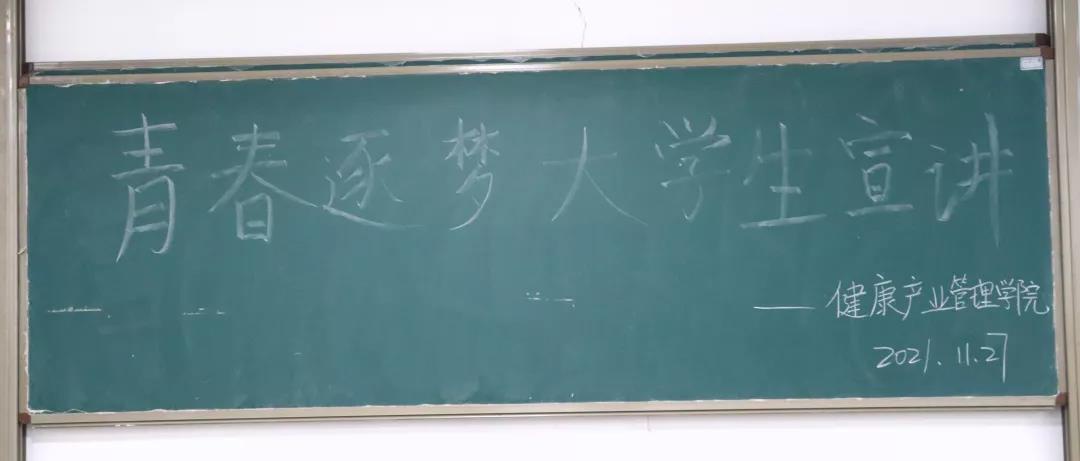 青春逐梦大学生宣讲
——健康产业管理学院
2021.11.27